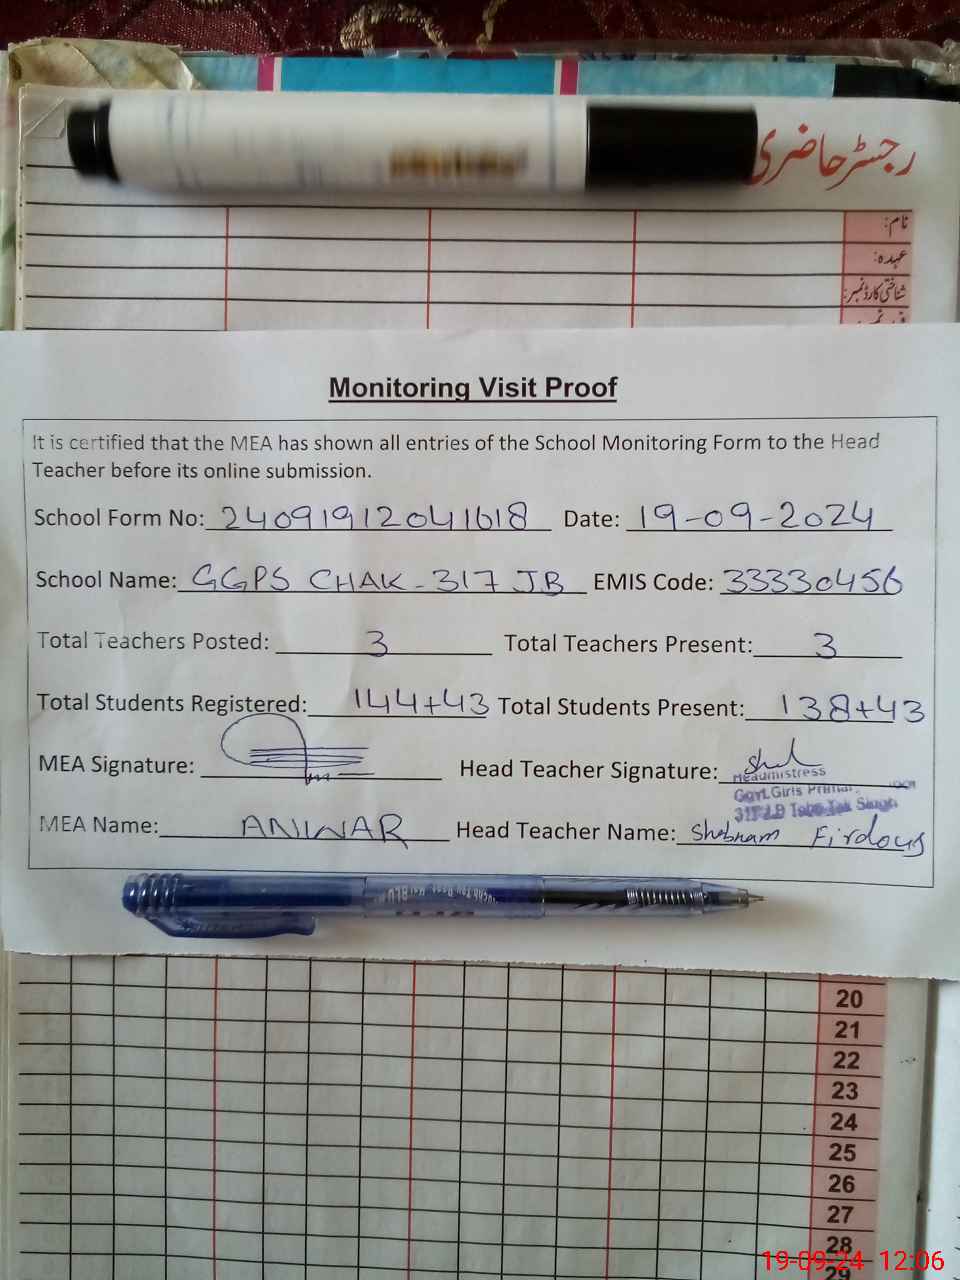 رجسٹر حاضری
نام:
عہدہ:
شناختی کارڈ نمبر:
Monitoring Visit Proof
It is certified that the MEA has shown all entries of the School Monitoring Form to the Head
Teacher before its online submission.
School Form No: 24091912041618 Date: 19-09-2024
School Name: GGPS CHAK-317 JB EMIS Code: 33330456
Total Teachers Posted: 3 Total Teachers Present: 3
Total Students Registered: 144+43 Total Students Present: 138+43
MEA Signature: Head Teacher Signature:
Headmistress
Govt. Girls
MEA Name: ANWAR Head Teacher Name: Shabnam Firdous
20
21
22
23
24
25
26
27
28
29
19-09-24 12:06